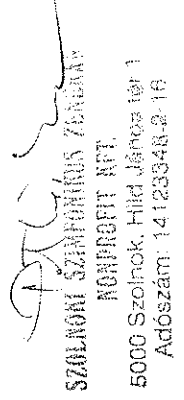 SZOLNOKI SZIMFONIKUS ZENEKAR
NONPROFIT KFT.
5000 Szolnok, Hild János tér 1
Adószám: 14123348-2-16